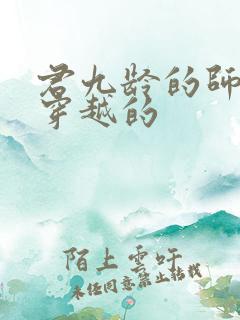 君九龄的师
穿越的
陌上云吁
未经同意禁止转载